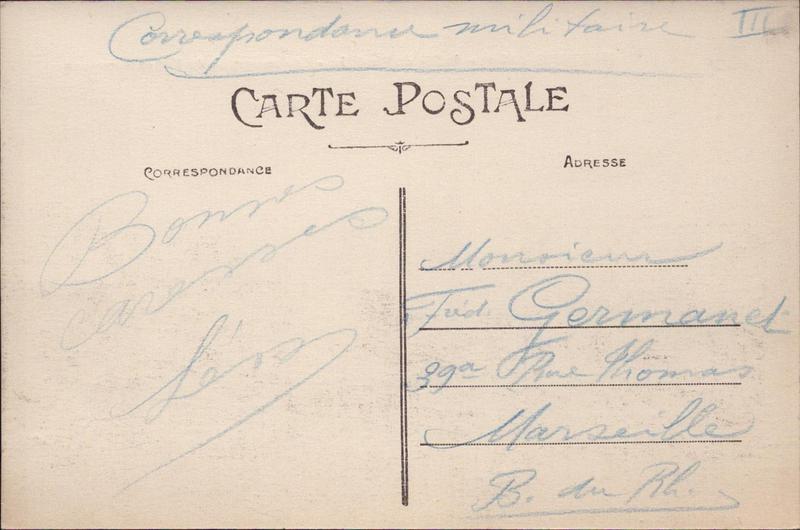 Correspondance militaire III
CARTE POSTALE
CORRESPONDANCE
ADRESSE
Bonnes
caresses
Léo
Monsieur
Fréd. Germanet
39a Rue Thomas
Marseille
B. du Rh.